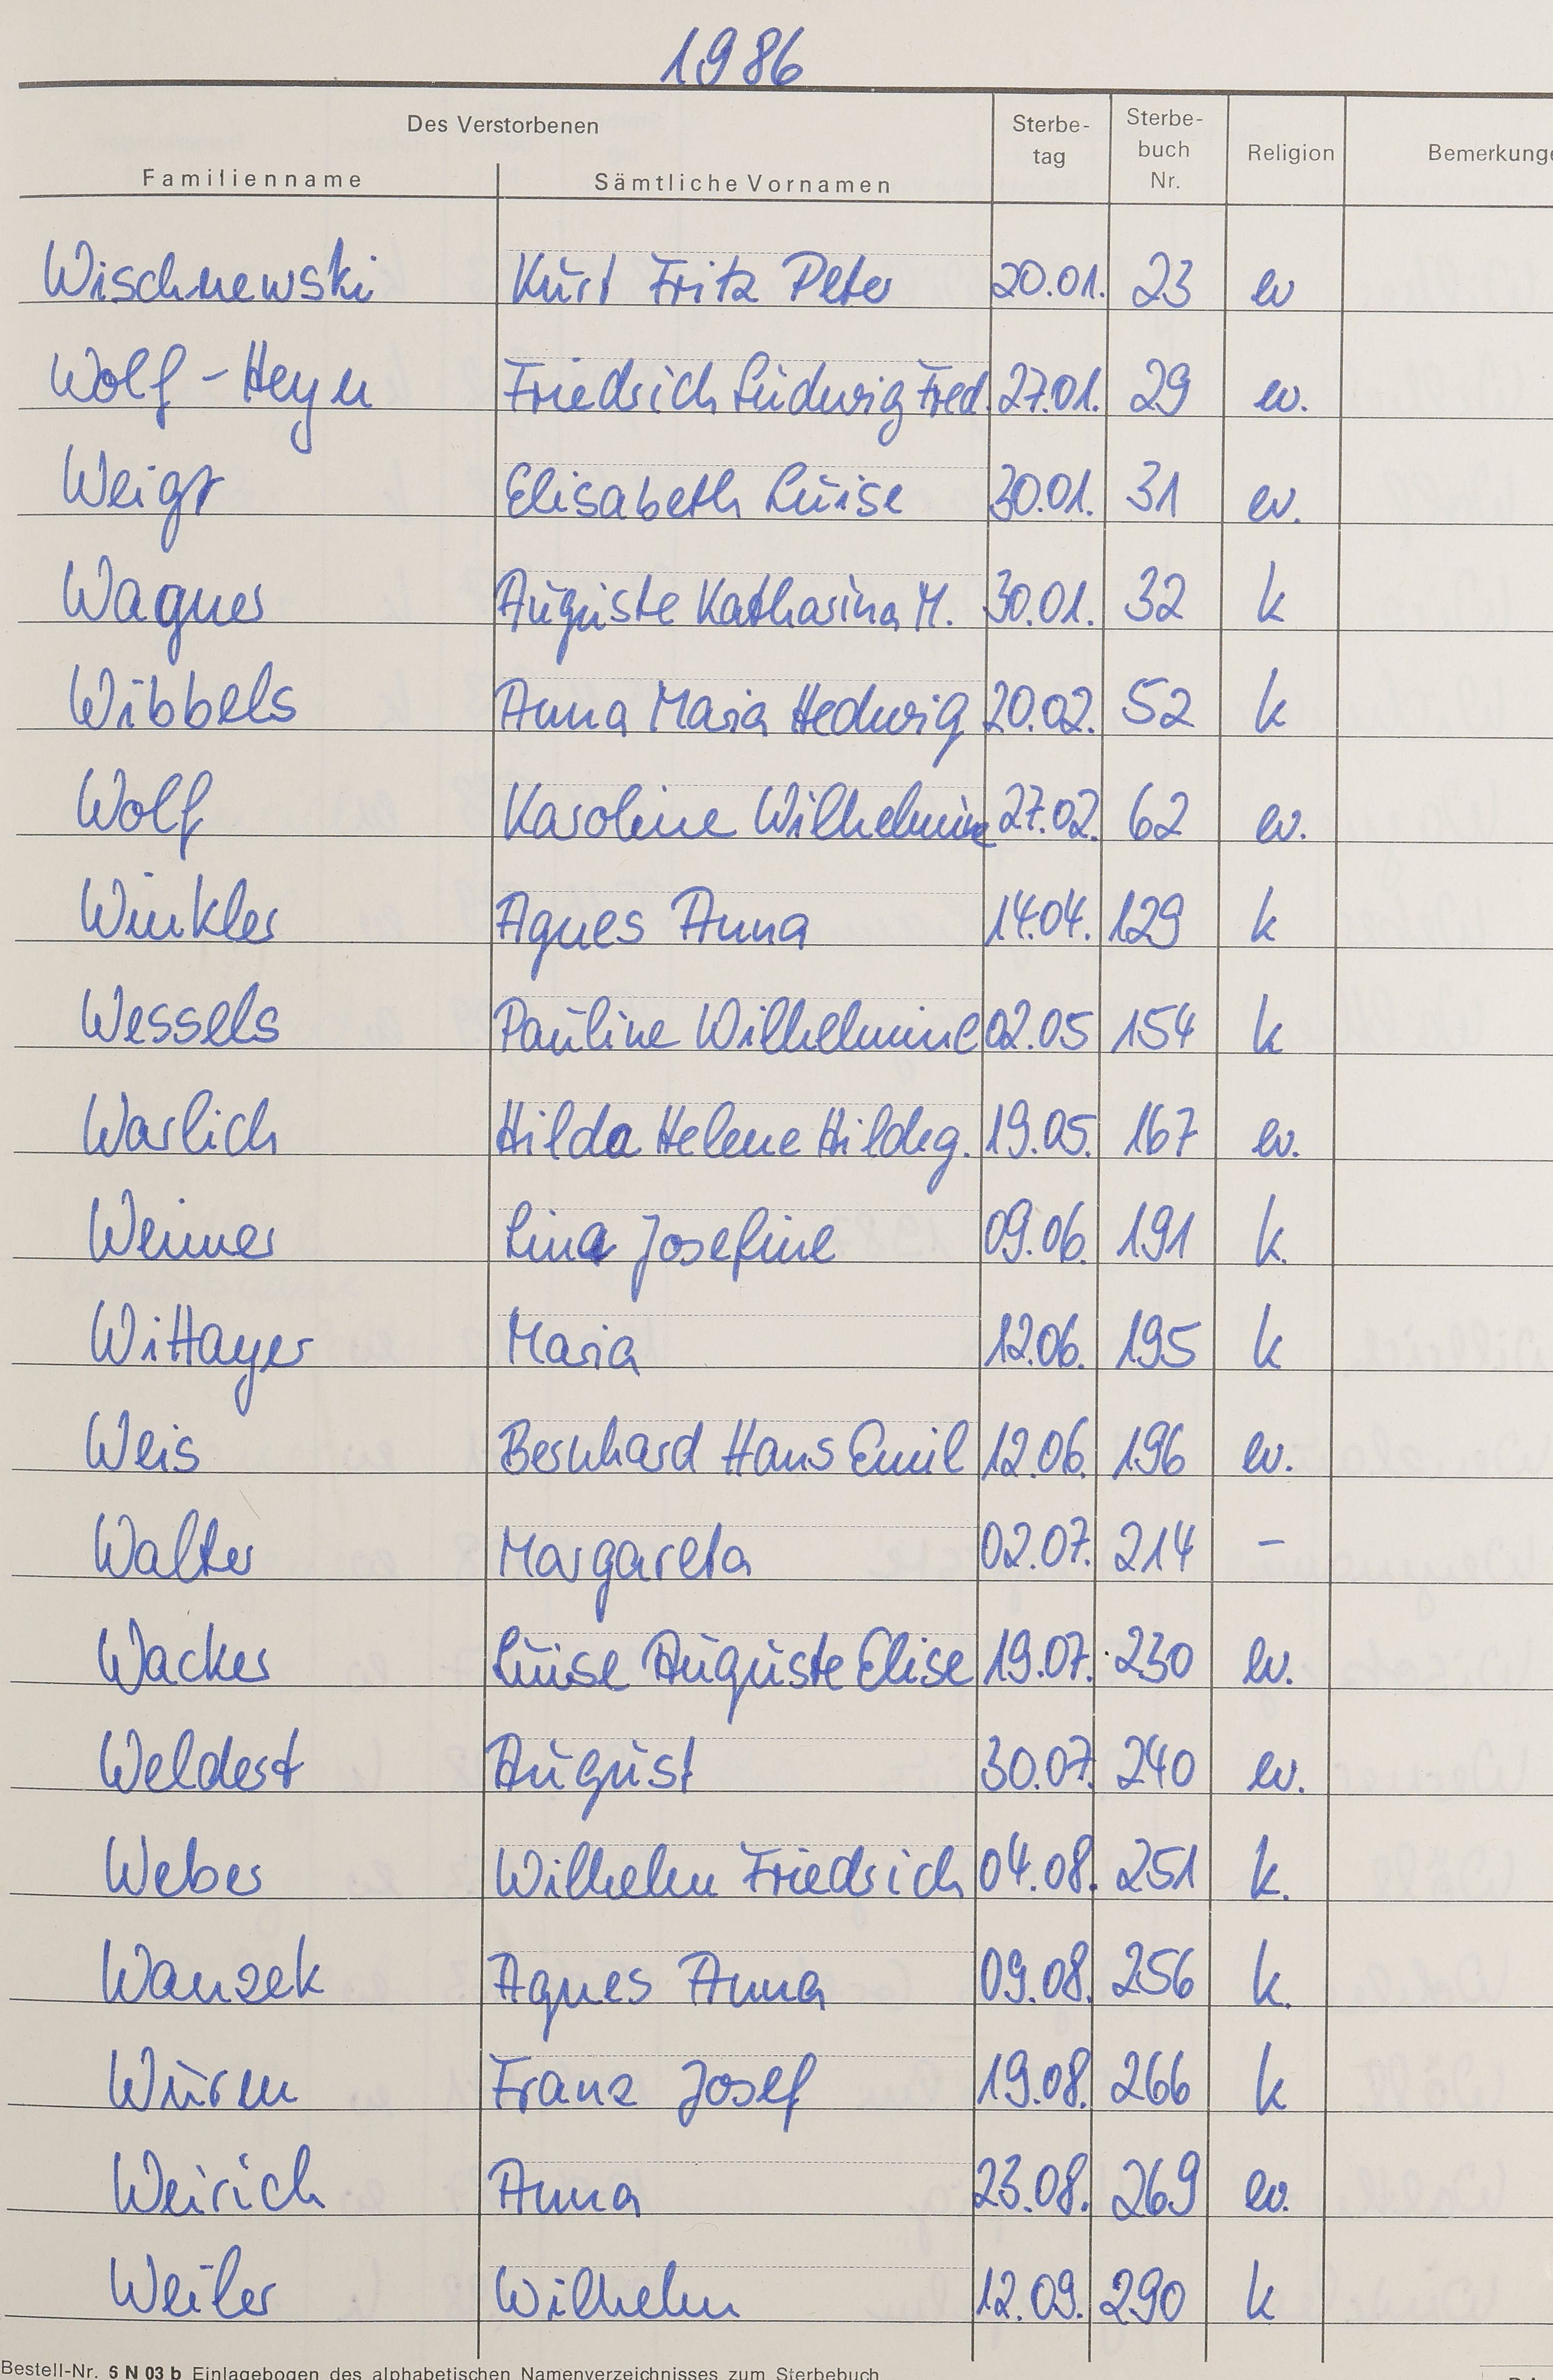 1986
Des Verstorbenen
Familienname Sämtliche Vornamen Sterbe- tag Sterbe- buch Nr. Religion Bemerkunge
Wischnewski Kurt Fritz Peter 20.01. 23 ev
Wolf-Heyn Friedrich Ludwig Fred. 27.01. 29 ev.
Weigt Elisabeth Luise 30.01. 31 ev.
Wagner Auguste Katharina M. 30.01. 32 k
Wibbels Anna Maria Hedwig 20.02. 52 k
Wolf Karoline Wilhelmine 27.02. 62 ev.
Winkler Agnes Anna 14.04. 129 k
Wessels Pauline Wilhelmine 02.05 154 k
Warlich Hilda Helene Hildeg. 19.05. 167 ev.
Weimer Lina Josefine 09.06. 191 k.
Wittayer Maria 12.06. 195 k
Weis Bernhard Hans Emil 12.06. 196 ev.
Walter Margareta 02.07. 214 –
Wacker Luise Auguste Elise 19.07. 230 ev.
Weldert August 30.07. 240 ev.
Weber Wilhelm Friedrich 04.08. 251 k.
Wanzek Agnes Anna 09.08. 256 k.
Wuren Franz Josef 19.08. 266 k
Weirich Anna 23.08. 269 ev.
Weiler Wilhelm 12.09. 290 k
Bestell-Nr. 5 N 03 b Einlagebogen des alphabetischen Namenverzeichnisses zum Sterbebuch